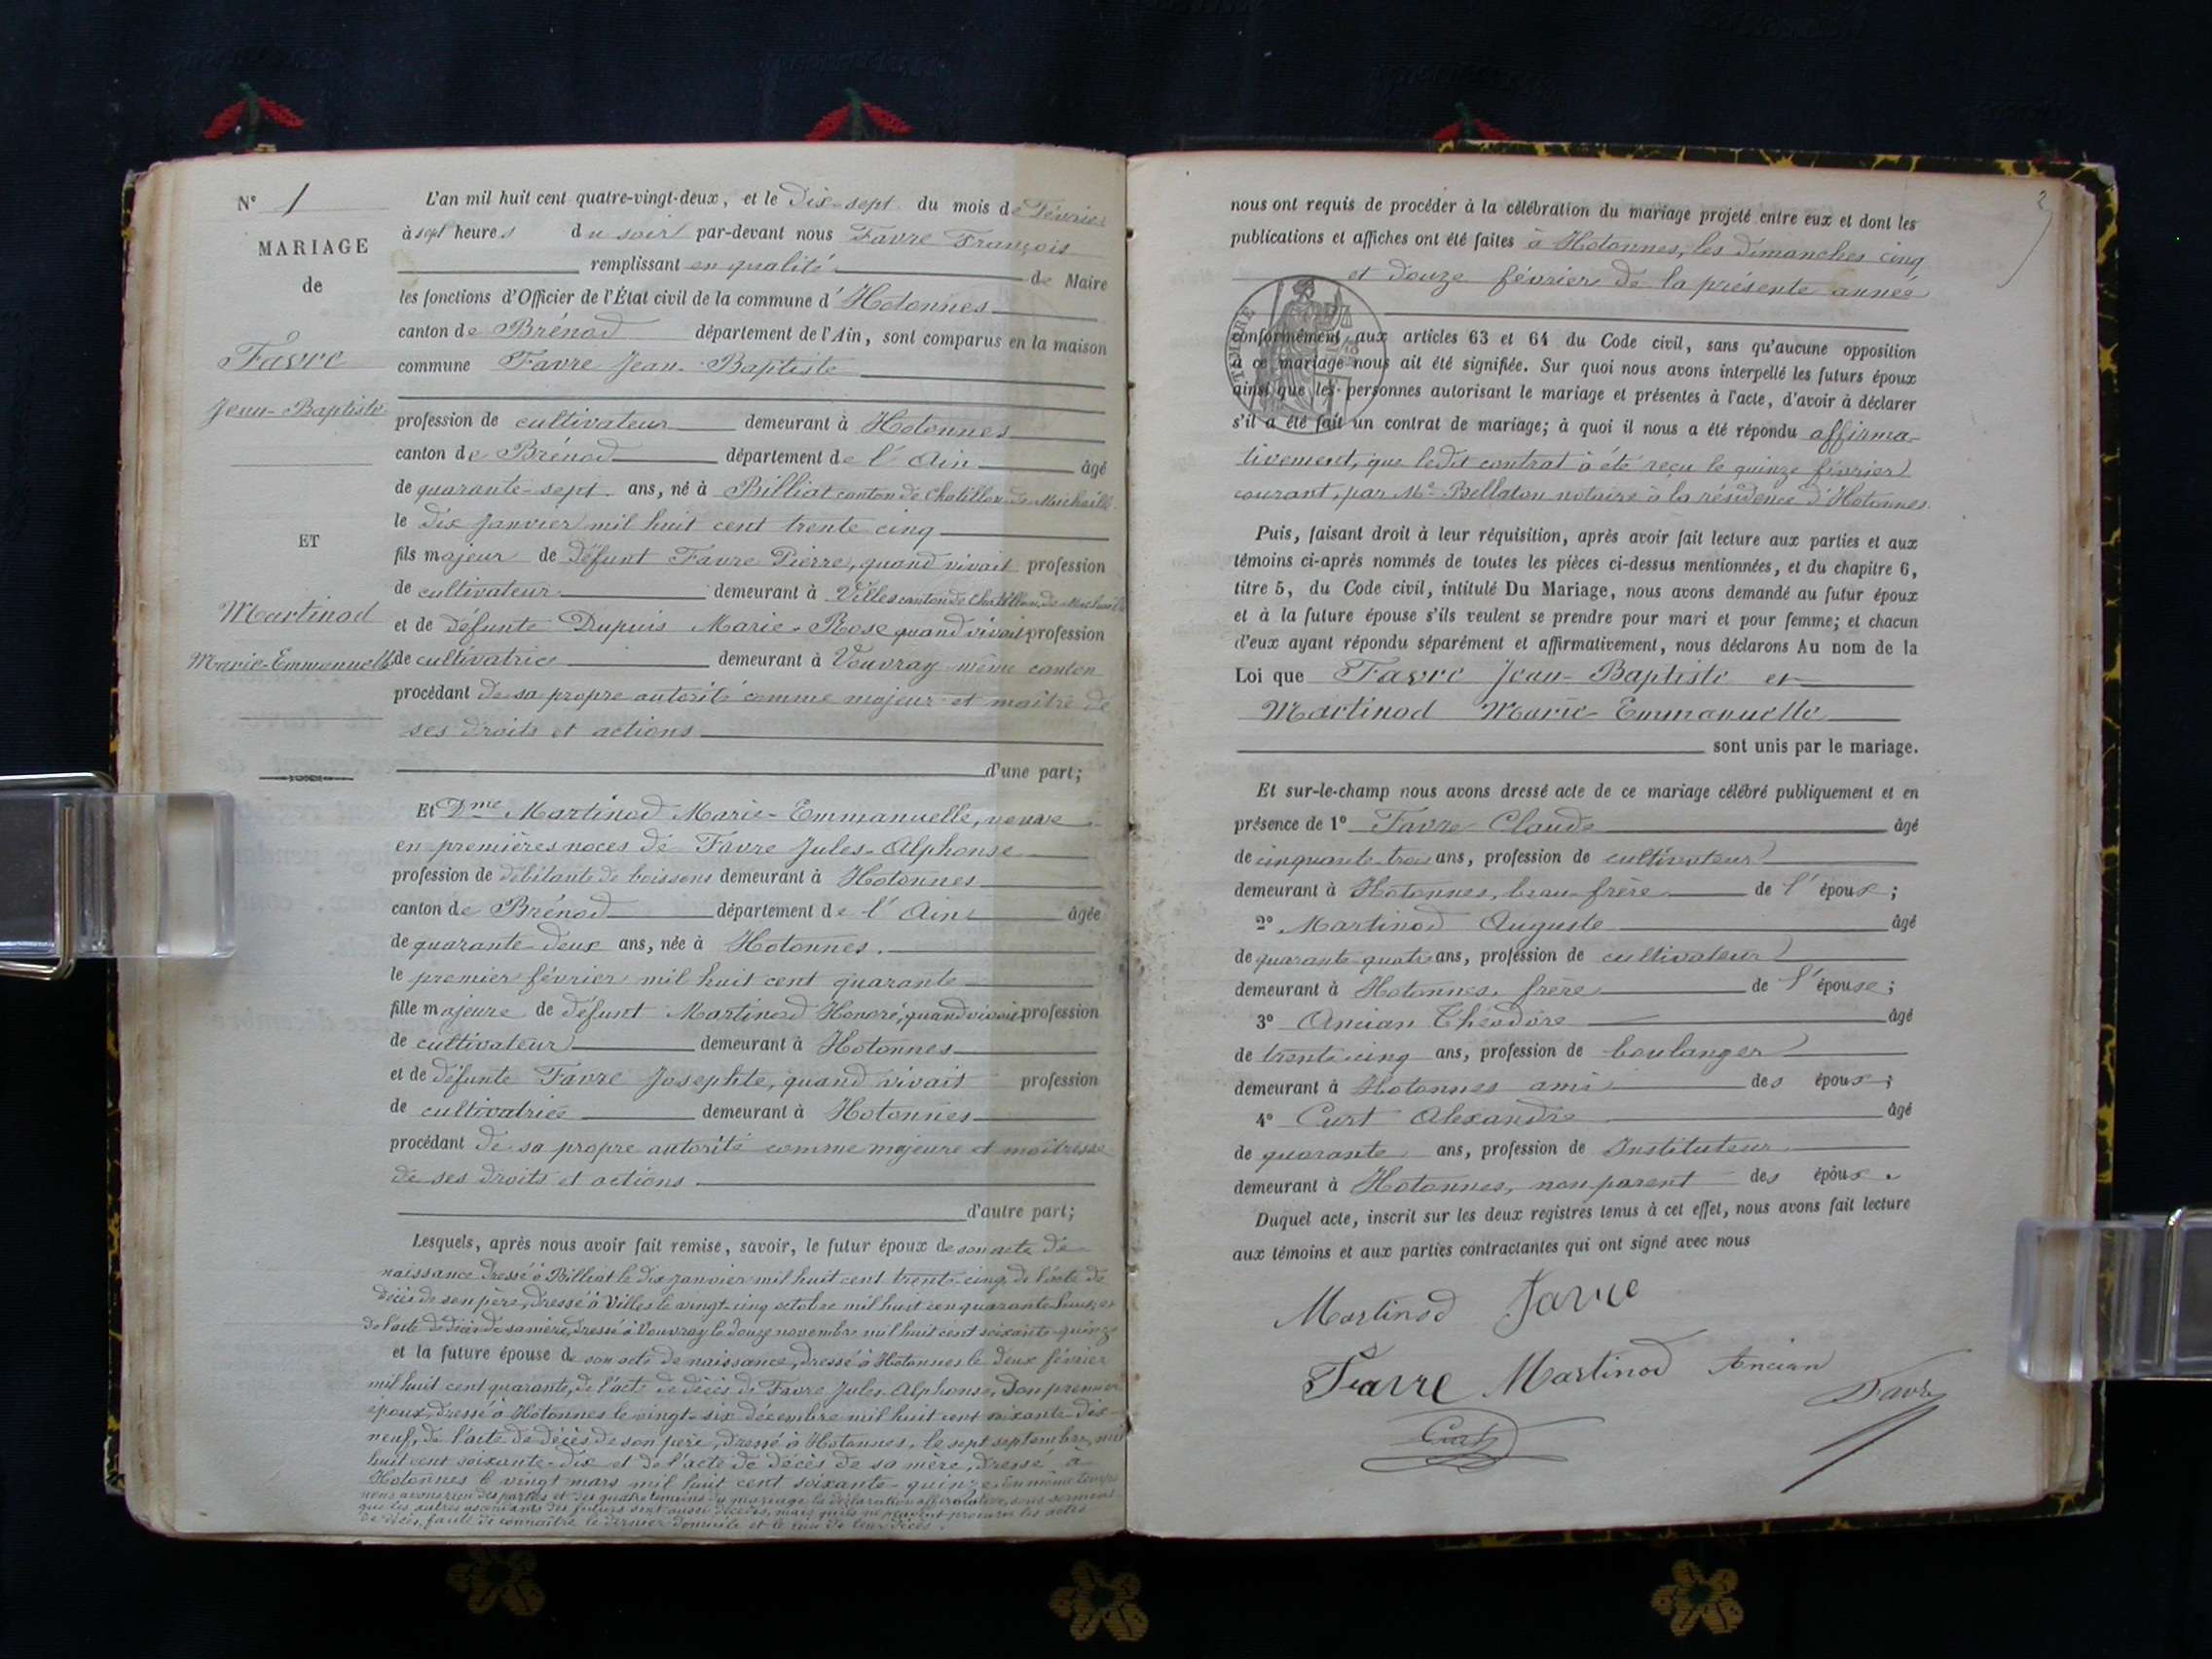 N° 1
MARIAGE
de
Favre
Jean-Baptiste
ET
Martinod
Marie-Emmanuelle
L'an mil huit cent quatre-vingt-deux, et le dix-sept du mois de Février
à sept heures du soir par-devant nous Favre François
remplissant en qualité de Maire
les fonctions d'Officier de l'État civil de la commune d'Hotonnes
canton de Brénod département de l'Ain, sont comparus en la maison
commune Favre Jean-Baptiste
profession de cultivateur demeurant à Hotonnes
canton de Brénod département de l'Ain âgé
de quarante-sept ans, né à Billiat canton de Chatillon-de-Michaille
le dix Janvier mil huit cent trente cinq
fils majeur de défunt Favre Pierre, quand vivait profession
de cultivateur demeurant à Villes canton de Chatillon-de-Michaille
et de défunte Dupuis Marie-Rose quand vivait profession
de cultivatrice demeurant à Vouvray même canton
procédant de sa propre autorité comme majeur et maître de
ses droits et actions
d'une part;
Et Dme Martinod Marie-Emmanuelle, veuve
en premières noces de Favre Jules-Alphonse
profession de débitante de boissons demeurant à Hotonnes
canton de Brénod département de l'Ain âgée
de quarante-deux ans, née à Hotonnes
le premier février mil huit cent quarante
fille majeure de défunt Martinod Honoré, quand vivait profession
de cultivateur demeurant à Hotonnes
et de défunte Favre Josephte, quand vivait profession
de cultivatrice demeurant à Hotonnes
procédant de sa propre autorité comme majeure et maîtresse
de ses droits et actions
d'autre part;
Lesquels, après nous avoir fait remise, savoir, le futur époux de son acte de
naissance dressé à Billiat le dix janvier mil huit cent trente-cinq, de l'acte de
décès de son père, dressé à Villes le vingt-cinq octobre mil huit cent quarante-deux, et
de l'acte de décès de sa mère, dressé à Vouvray le douze novembre mil huit cent soixante-quinze
et la future épouse de son acte de naissance, dressé à Hotonnes le deux février
mil huit cent quarante, de l'acte de décès de Favre Jules-Alphonse, son premier
époux, dressé à Hotonnes le vingt-six décembre mil huit cent soixante-dix-
neuf, de l'acte de décès de son père, dressé à Hotonnes, le sept septembre mil
huit cent soixante-dix et de l'acte de décès de sa mère, dressé à
Hotonnes le vingt mars mil huit cent soixante-quinze. En même temps
nous avons reçu des parties et des quatre témoins du mariage la déclaration affirmative, sous serment
que les autres ascendants des futurs sont aussi décédés, mais qu'ils ne peuvent procurer les actes
de décès, faute de connaître le dernier domicile et le lieu de leur décès.
2
nous ont requis de procéder à la célébration du mariage projeté entre eux et dont les
publications et affiches ont été faites à Hotonnes, les dimanches cinq
et douze février de la présente année
TIMBRE
conformément aux articles 63 et 64 du Code civil, sans qu'aucune opposition
à ce mariage nous ait été signifiée. Sur quoi nous avons interpellé les futurs époux
ainsi que les personnes autorisant le mariage et présentes à l'acte, d'avoir à déclarer
s'il a été fait un contrat de mariage; à quoi il nous a été répondu affirma-
tivement, que ledit contrat a été reçu le quinze février
courant, par Me Bellaton notaire à la résidence d'Hotonnes.
Puis, faisant droit à leur réquisition, après avoir fait lecture aux parties et aux
témoins ci-après nommés de toutes les pièces ci-dessus mentionnées, et du chapitre 6,
titre 5, du Code civil, intitulé Du Mariage, nous avons demandé au futur époux
et à la future épouse s'ils veulent se prendre pour mari et pour femme; et chacun
d'eux ayant répondu séparément et affirmativement, nous déclarons Au nom de la
Loi que Favre Jean-Baptiste et
Martinod Marie-Emmanuelle
sont unis par le mariage.
Et sur-le-champ nous avons dressé acte de ce mariage célébré publiquement et en
présence de 1° Favre Claude âgé
de cinquante-trois ans, profession de cultivateur
demeurant à Hotonnes, beau-frère de l'époux;
2° Martinod Auguste âgé
de quarante quatre ans, profession de cultivateur
demeurant à Hotonnes, frère de l'épouse;
3° Ancian Théodore âgé
de trente cinq ans, profession de boulanger
demeurant à Hotonnes ami des époux;
4° Curt Alexandre âgé
de quarante ans, profession de Instituteur
demeurant à Hotonnes, non parent des époux.
Duquel acte, inscrit sur les deux registres tenus à cet effet, nous avons fait lecture
aux témoins et aux parties contractantes qui ont signé avec nous
Martinod Favre
Favre Martinod Ancian
Favre
Curt